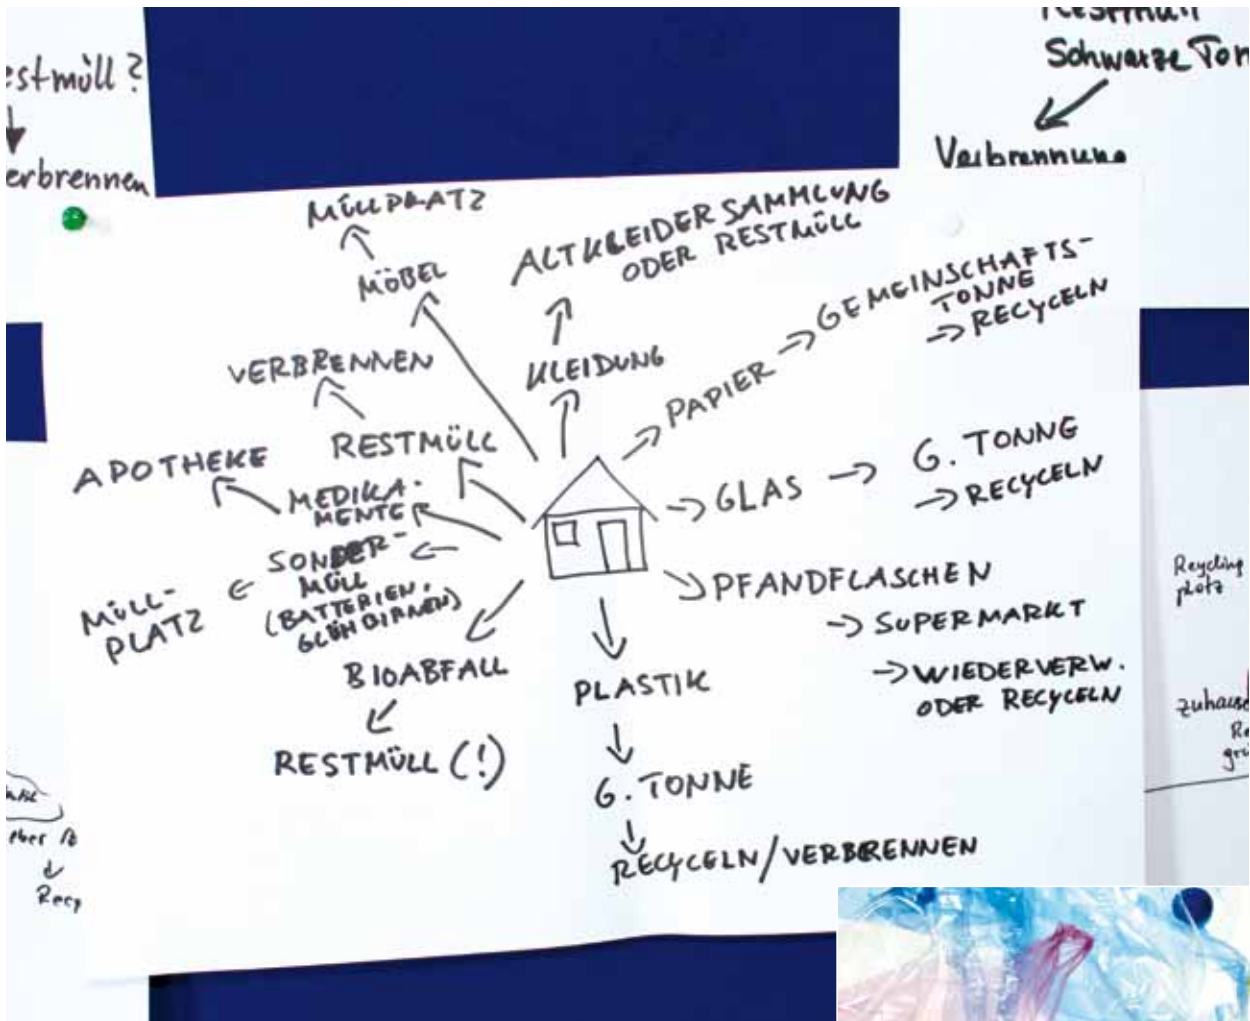 estmüll?
erbrennen
Restmüll
Schwarze Ton
Verbrennung
MÜLLPLATZ
MÖBEL
ALTKLEIDERSAMMLUNG
ODER RESTMÜLL
KLEIDUNG
PAPIER
GEMEINSCHAFTS-
TONNE
RECYCELN
VERBRENNEN
RESTMÜLL
APOTHEKE
MEDIKA-
MENTE
SONDER-
MÜLL
(BATTERIEN,
GLÜHBIRNEN)
MÜLL-
PLATZ
GLAS
G. TONNE
RECYCELN
PFANDFLASCHEN
SUPERMARKT
WIEDERVERW.
ODER RECYCELN
BIOABFALL
RESTMÜLL (!)
PLASTIK
G. TONNE
RECYCELN/VERBRENNEN
Recycling
platz
zuhause
Re
grü
Recy